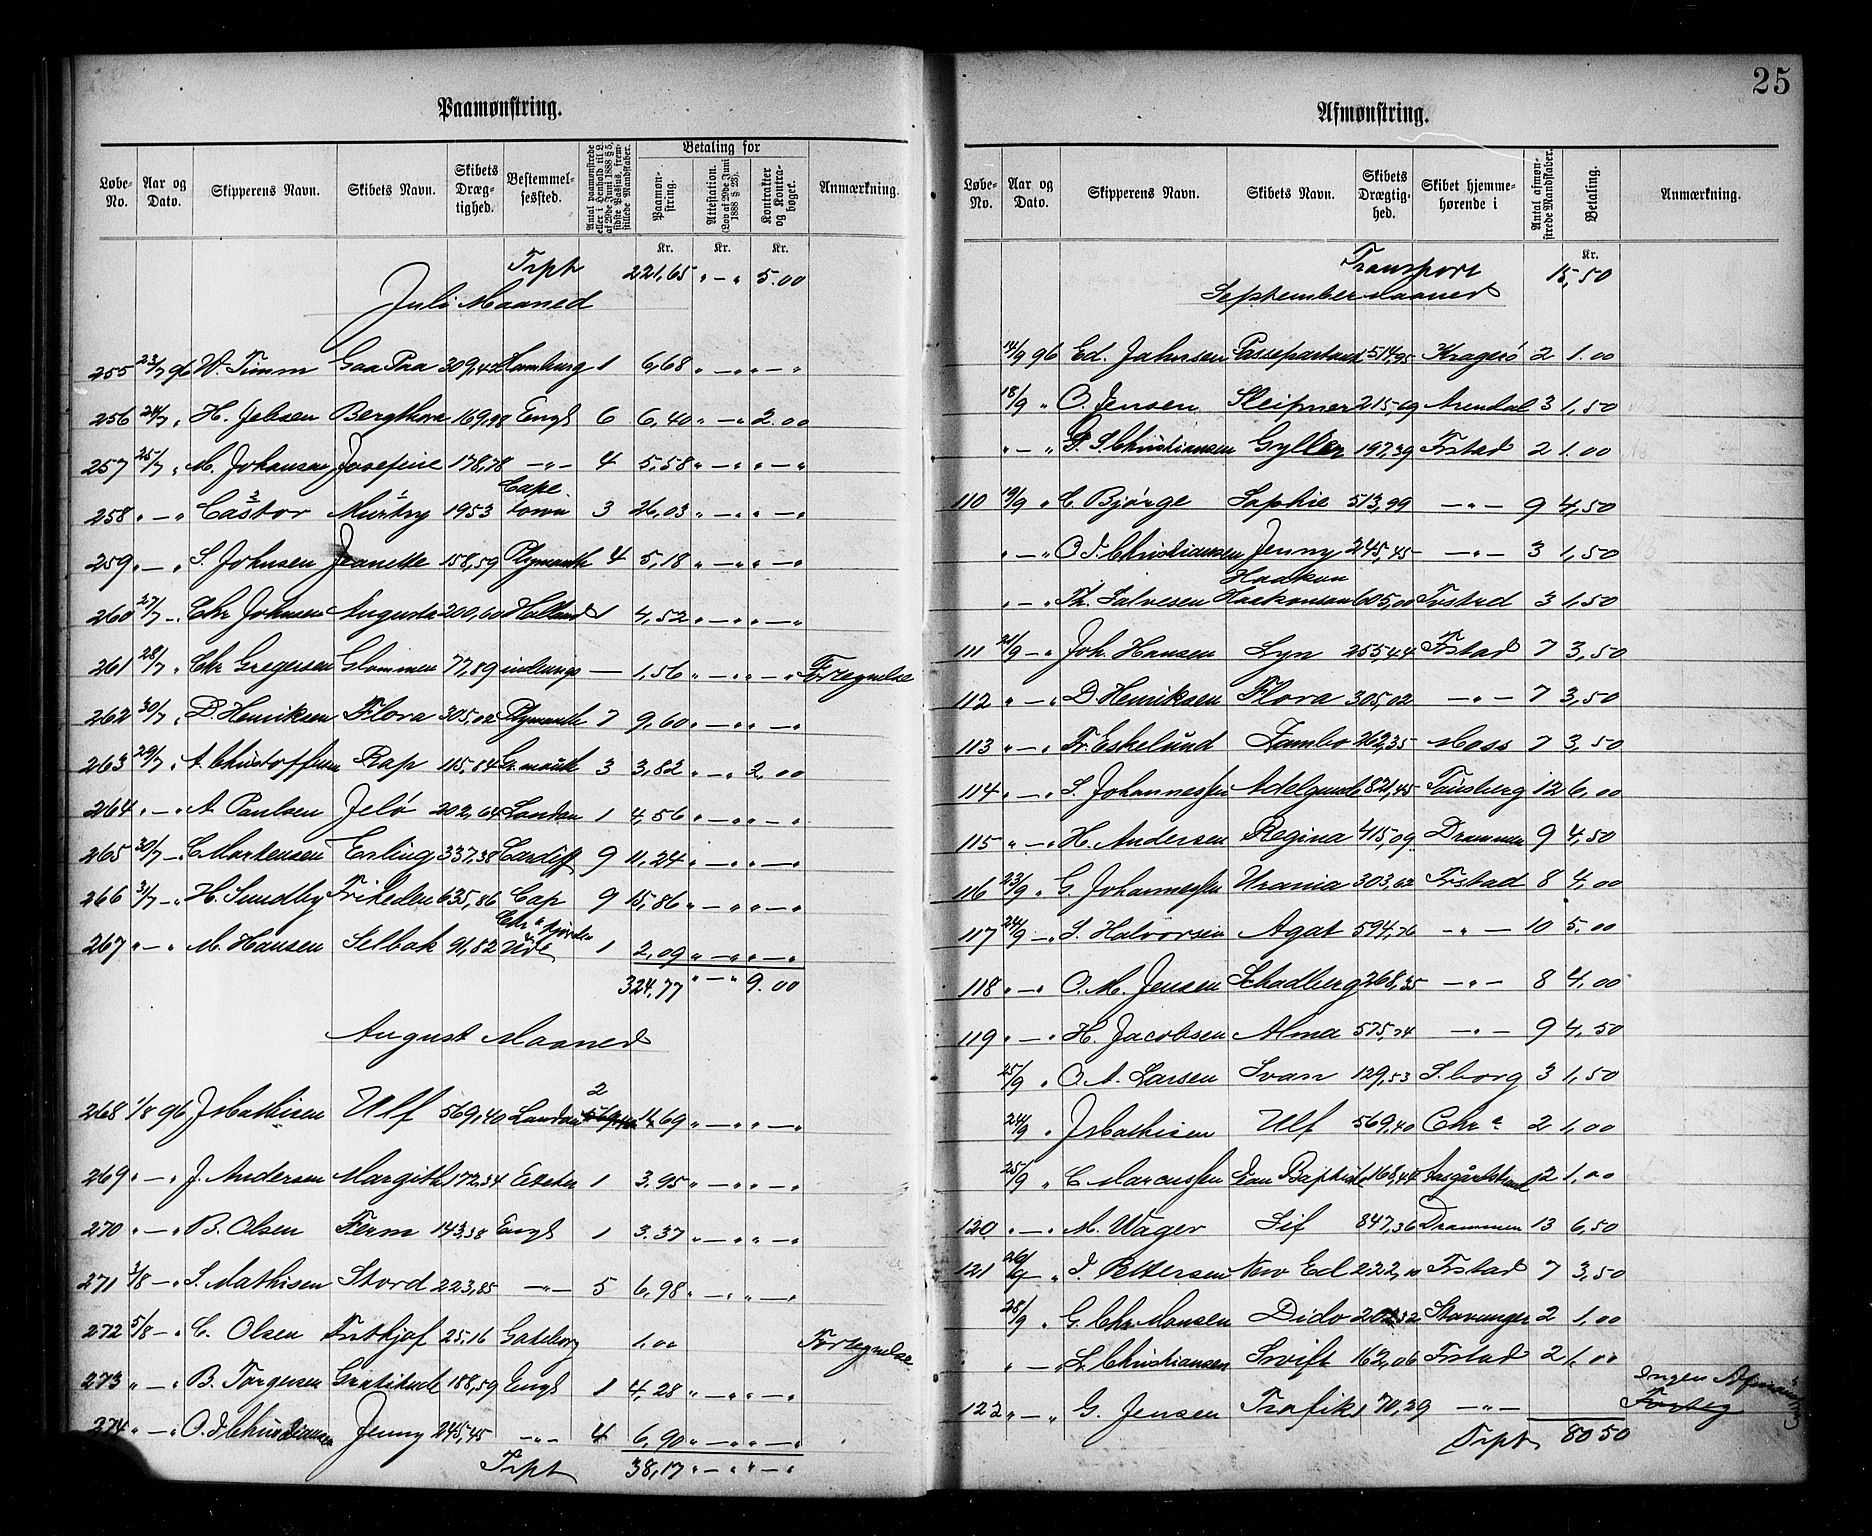 25
Paamønstring.
Løbe-No. Aar og Dato. Skipperens Navn. Skibets Navn. Skibets Dræg-tighed. Bestemmel-sessted. Antal paamønstrede eller i Henhold til L. af 29de Juni 1888 § 5, sidste Passus, frem-stillede Mandskaber. Betaling for Paamøn-string. Attestation. (Lov af 29de Juni 1888 § 23). Kontrakter og Kontra-bøger. Anmærkning.
Kr. Kr. Kr.
Trpt 221,65 " — " 5.00
Juli Maaned
255 23/7 96 W. Timm Gaa Paa 309,42 Hamburg 1 6,68 " — " " — "
256 24/7 " H. Jebsen Bergthora 169,98 Engl 6 6,40 " — " 2.00
257 25/7 " M. Johansen Josefine 178,78 — " — 4 5,58 " — " " — "
258 " — " Castor Murtry 1953 Cape town 3 26,03 " — " " — "
259 " — " S. Johnsen Jeanette 158,59 Plymouth 4 5,18 " — " " — "
260 27/7 — " Chr Johnsen Augusta 200,60 Holland 1 4,52 " — " " — "
261 28/7 " Chr Gregersen Glommen 77,89 indenrigs — 1,56 " — " " — " Fortegnelse
262 30/7 " D. Henriksen Flora 305,02 Plymouth 7 9,60 " — " " — "
263 29/7 " A. Christoffersen Rap 115,84 Gr.mouth 3 3,82 " — " 2,00
264 " — " A. Paulsen Jelø 202,64 London 1 4,56 " — " " — "
265 30/7 — " C Mortensen Erling 337,38 Cardiff 9 11,24 " — " " — "
266 31/7 — " H. Sundby Friheden 635,86 Cap 9 15,86 " — " " — "
267 " — " M. Hansen Selbak 91,82 Chr a fjorden 1 2,09 " — " " — "
324,77 " — " 9.00
August Maaned
268 1/8 96 J Mathisen Ulf 569,40 London 2 14,69 " — " " — "
269 " — " J. Andersen Margith 172,34 Exeter 1 3,95 " — " " — "
270 " — " B. Olsen Ferm 143,38 Engl 1 3.37 " — " " — "
271 3/8 — " S. Mathisen Stord 223,85 — " — 5 6,98 " — " " — "
272 5/8 — " C. Olsen Frithjof 25,16 Goteborg 1,00 Fortegnelse
273 " — " B. Torgersen Gratitude 188,59 Engl 1 4,28 " — " " — "
274 " — " O. J Christiansen Jenny 245,45 — " — 4 6,90 " — " " — "
Trpt 38,17 " — " " — "
Afmønstring.
Løbe-No. Aar og Dato. Skipperens Navn. Skibets Navn. Skibets Drægtig-hed. Skibet hjemme-hørende i Antal afmøn-strede Mandskaber. Betaling. Anmærkning.
Kr.
Transport 15,50
September Maaned
14/9 96 Ed. Jahnsen Passepartout 514,95 Kragerö 2 1.00
18/9 " O. Jensen Sleipner 215,69 Arendal 3 1,50
" — " G. S. Christiansen Gyller 197,39 Frstad 2 1.00
110 19/9 " C. Bjørge Sophie 513,99 — " — 9 4,50
" — " O J. Christiansen Jenny 245,45 — " — 3 1,50
" — " Th. Salvesen Haakon Haakonsen 605,00 Frstad 3 1,50
111 21/9 — " Joh. Hansen Lyn 255,44 Frstad 7 3,50
112 " — " D. Henriksen Flora 305,02 — " — 7 3,50
113 " — " Fr. Eskelund Jambo 262,35 Moss 7 3,50
114 " — " S. Johannessen Adelgunde 821,45 Tønsberg 12 6,00
115 " — " H. Andersen Regina 415,09 Drammen 9 4,50
116 23/9 " G. Johannessen Urania 303,62 Frstad 8 4,00
117 24/9 — " S. Halvorsen Agat 594,76 — " — 10 5.00
118 " — " O. M. Jensen Schadberg 268,35 — " — 8 4,00
119 " — " H. Jacobsen Alma 575,74 — " — 9 4,50
25/9 " O. A. Larsen Svan 129,53 S.borg 3 1,50
24/9 " J Mathisen Ulf 569,40 Chr a 2 1,00
25/9 " C Marcussen Jean Baptiste 168,44 Aasgårdstrand 2 1,00
120 " — " M. Wäger Sif 847,36 Drammen 13 6,50
121 26/9 — " J. Pettersen New Ed 222,10 Frstad 7 3,50
28/9 " G. Chr. Monsen Dido Stavanger 2 1,00
" — " L. Christiansen Swift 162,06 Frstad 2 1,00
122 " — " G. Jensen Trafik 170,29 — " — Ingen Afmönstring
Trpt 80 50